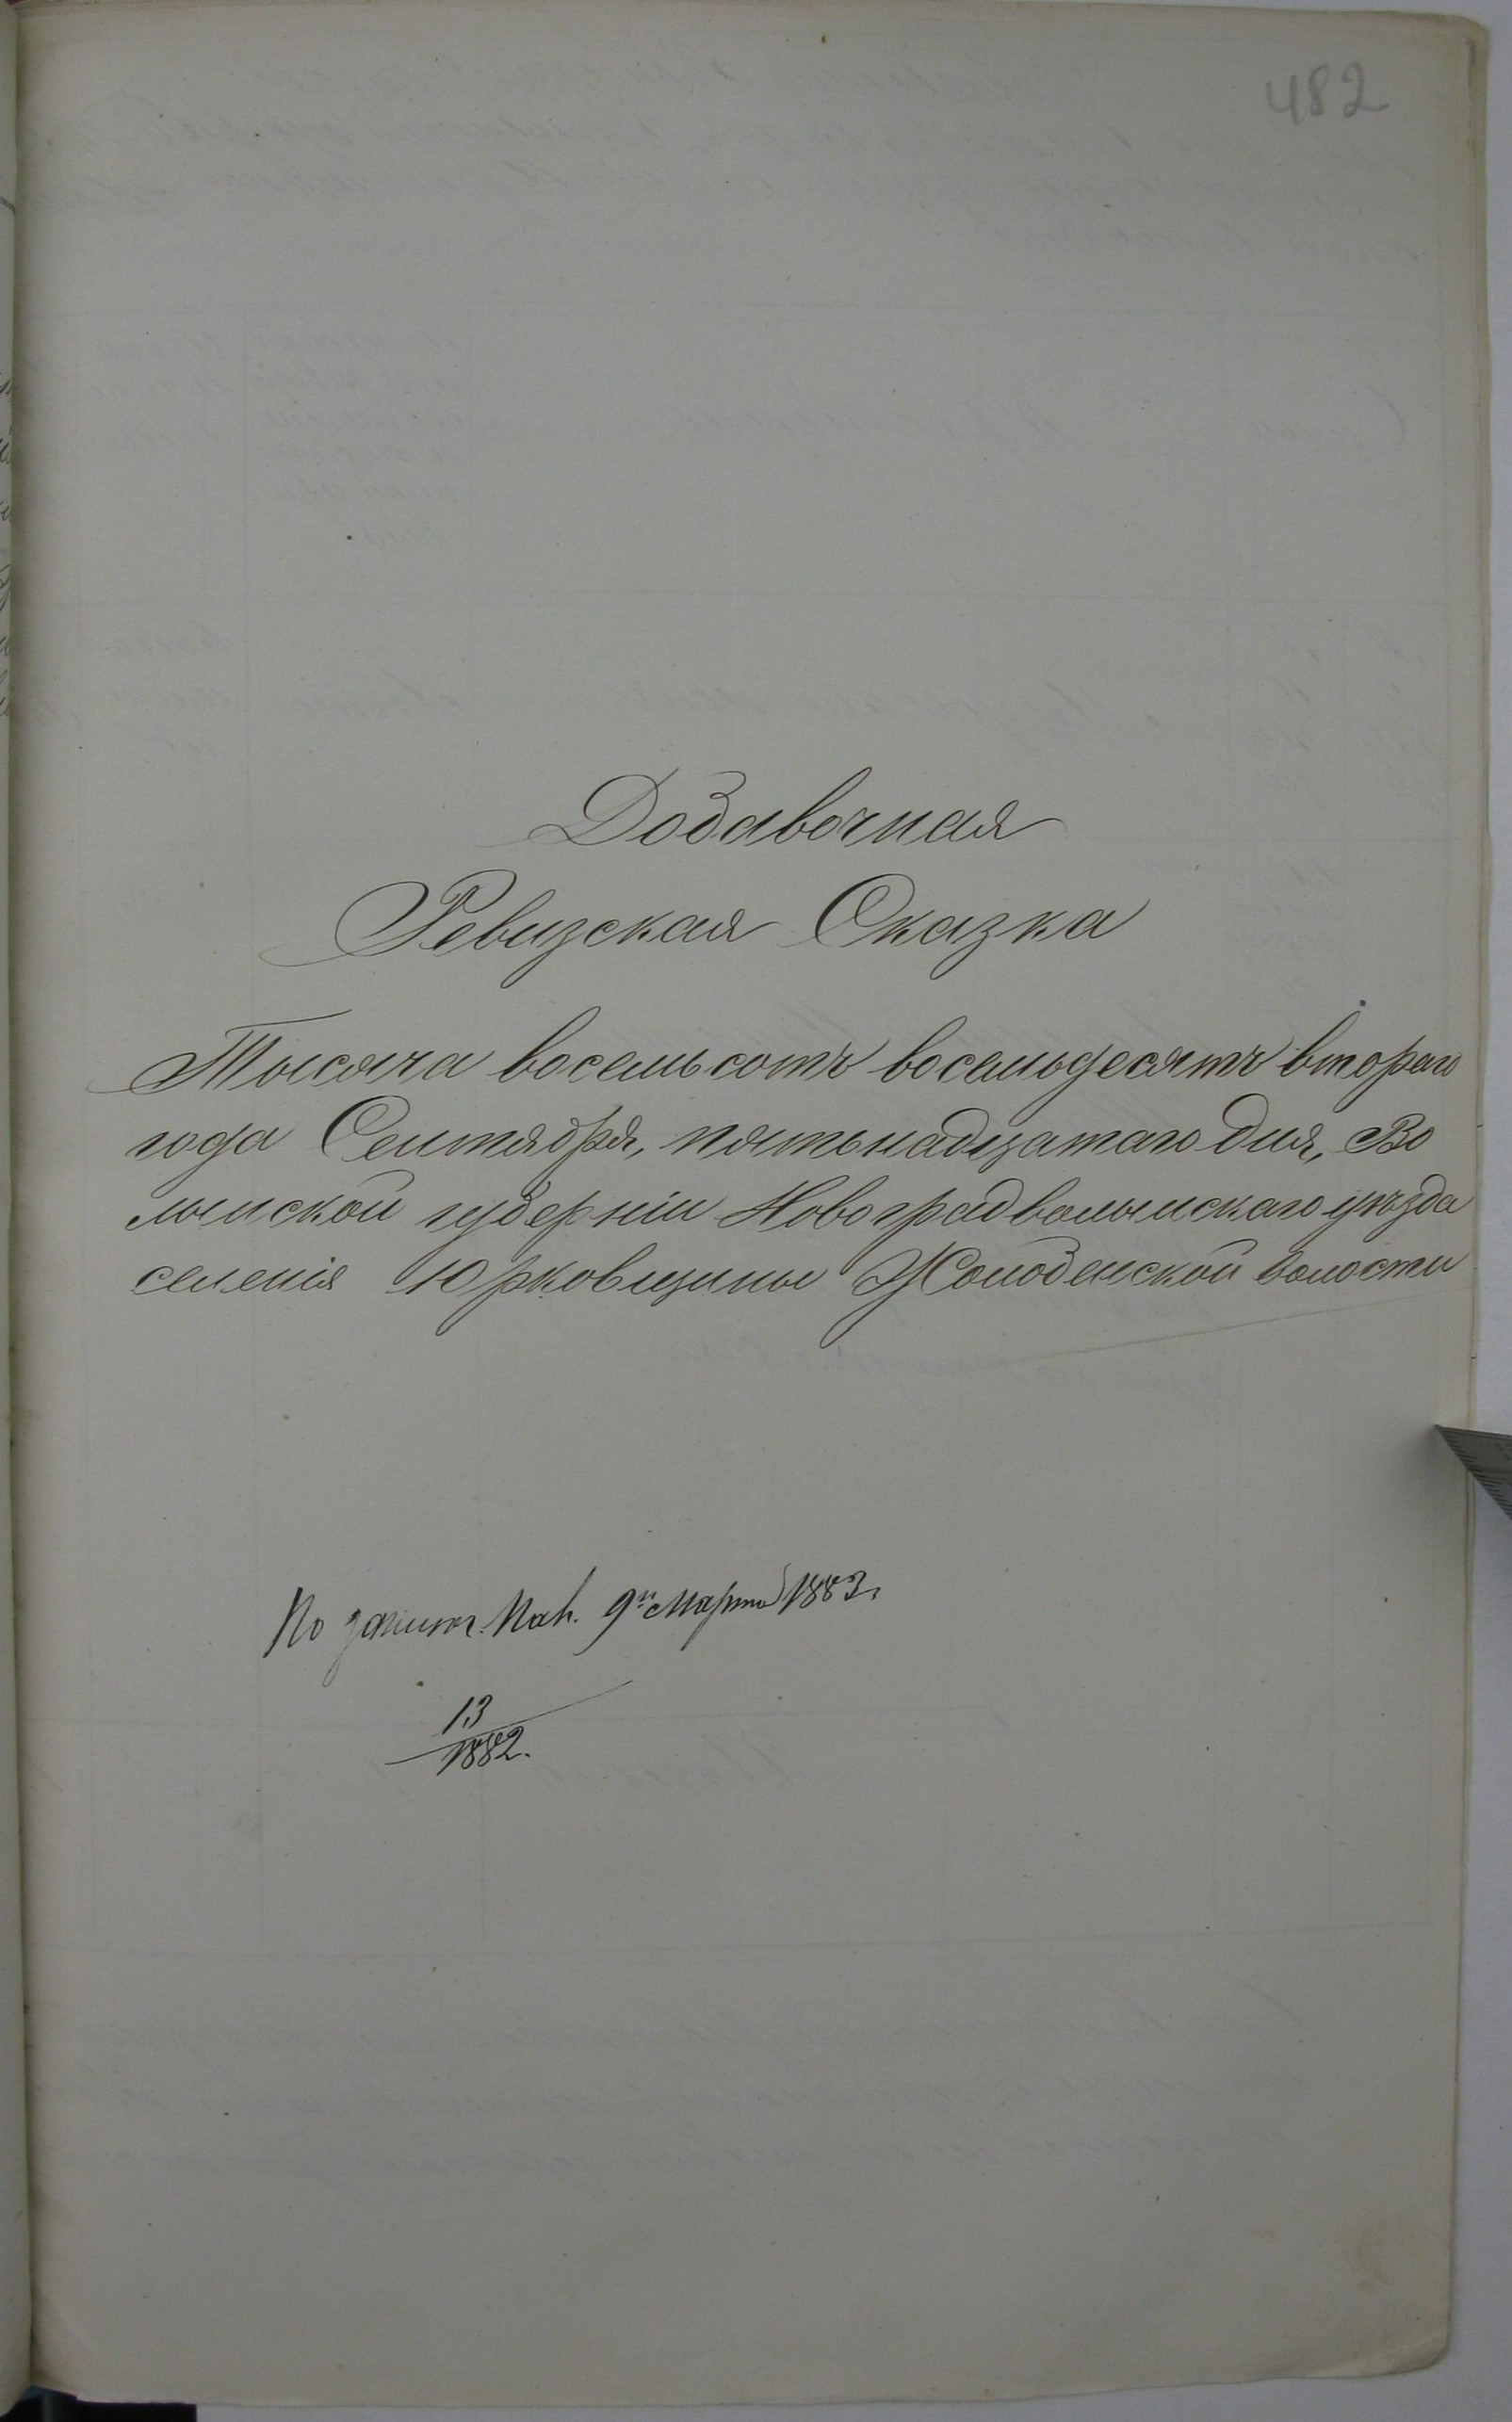 482
Добавочная
Ревизская Сказка
Тысяча восемьсотъ восемьдесятъ втораго
года Сентября, пятьнадцатаго дня, Во
лынской губерніи Новоградволынскаго уѣзда
селенія Юрковщины Жолобенской волости
По 9го Марта 1883
13
1882.